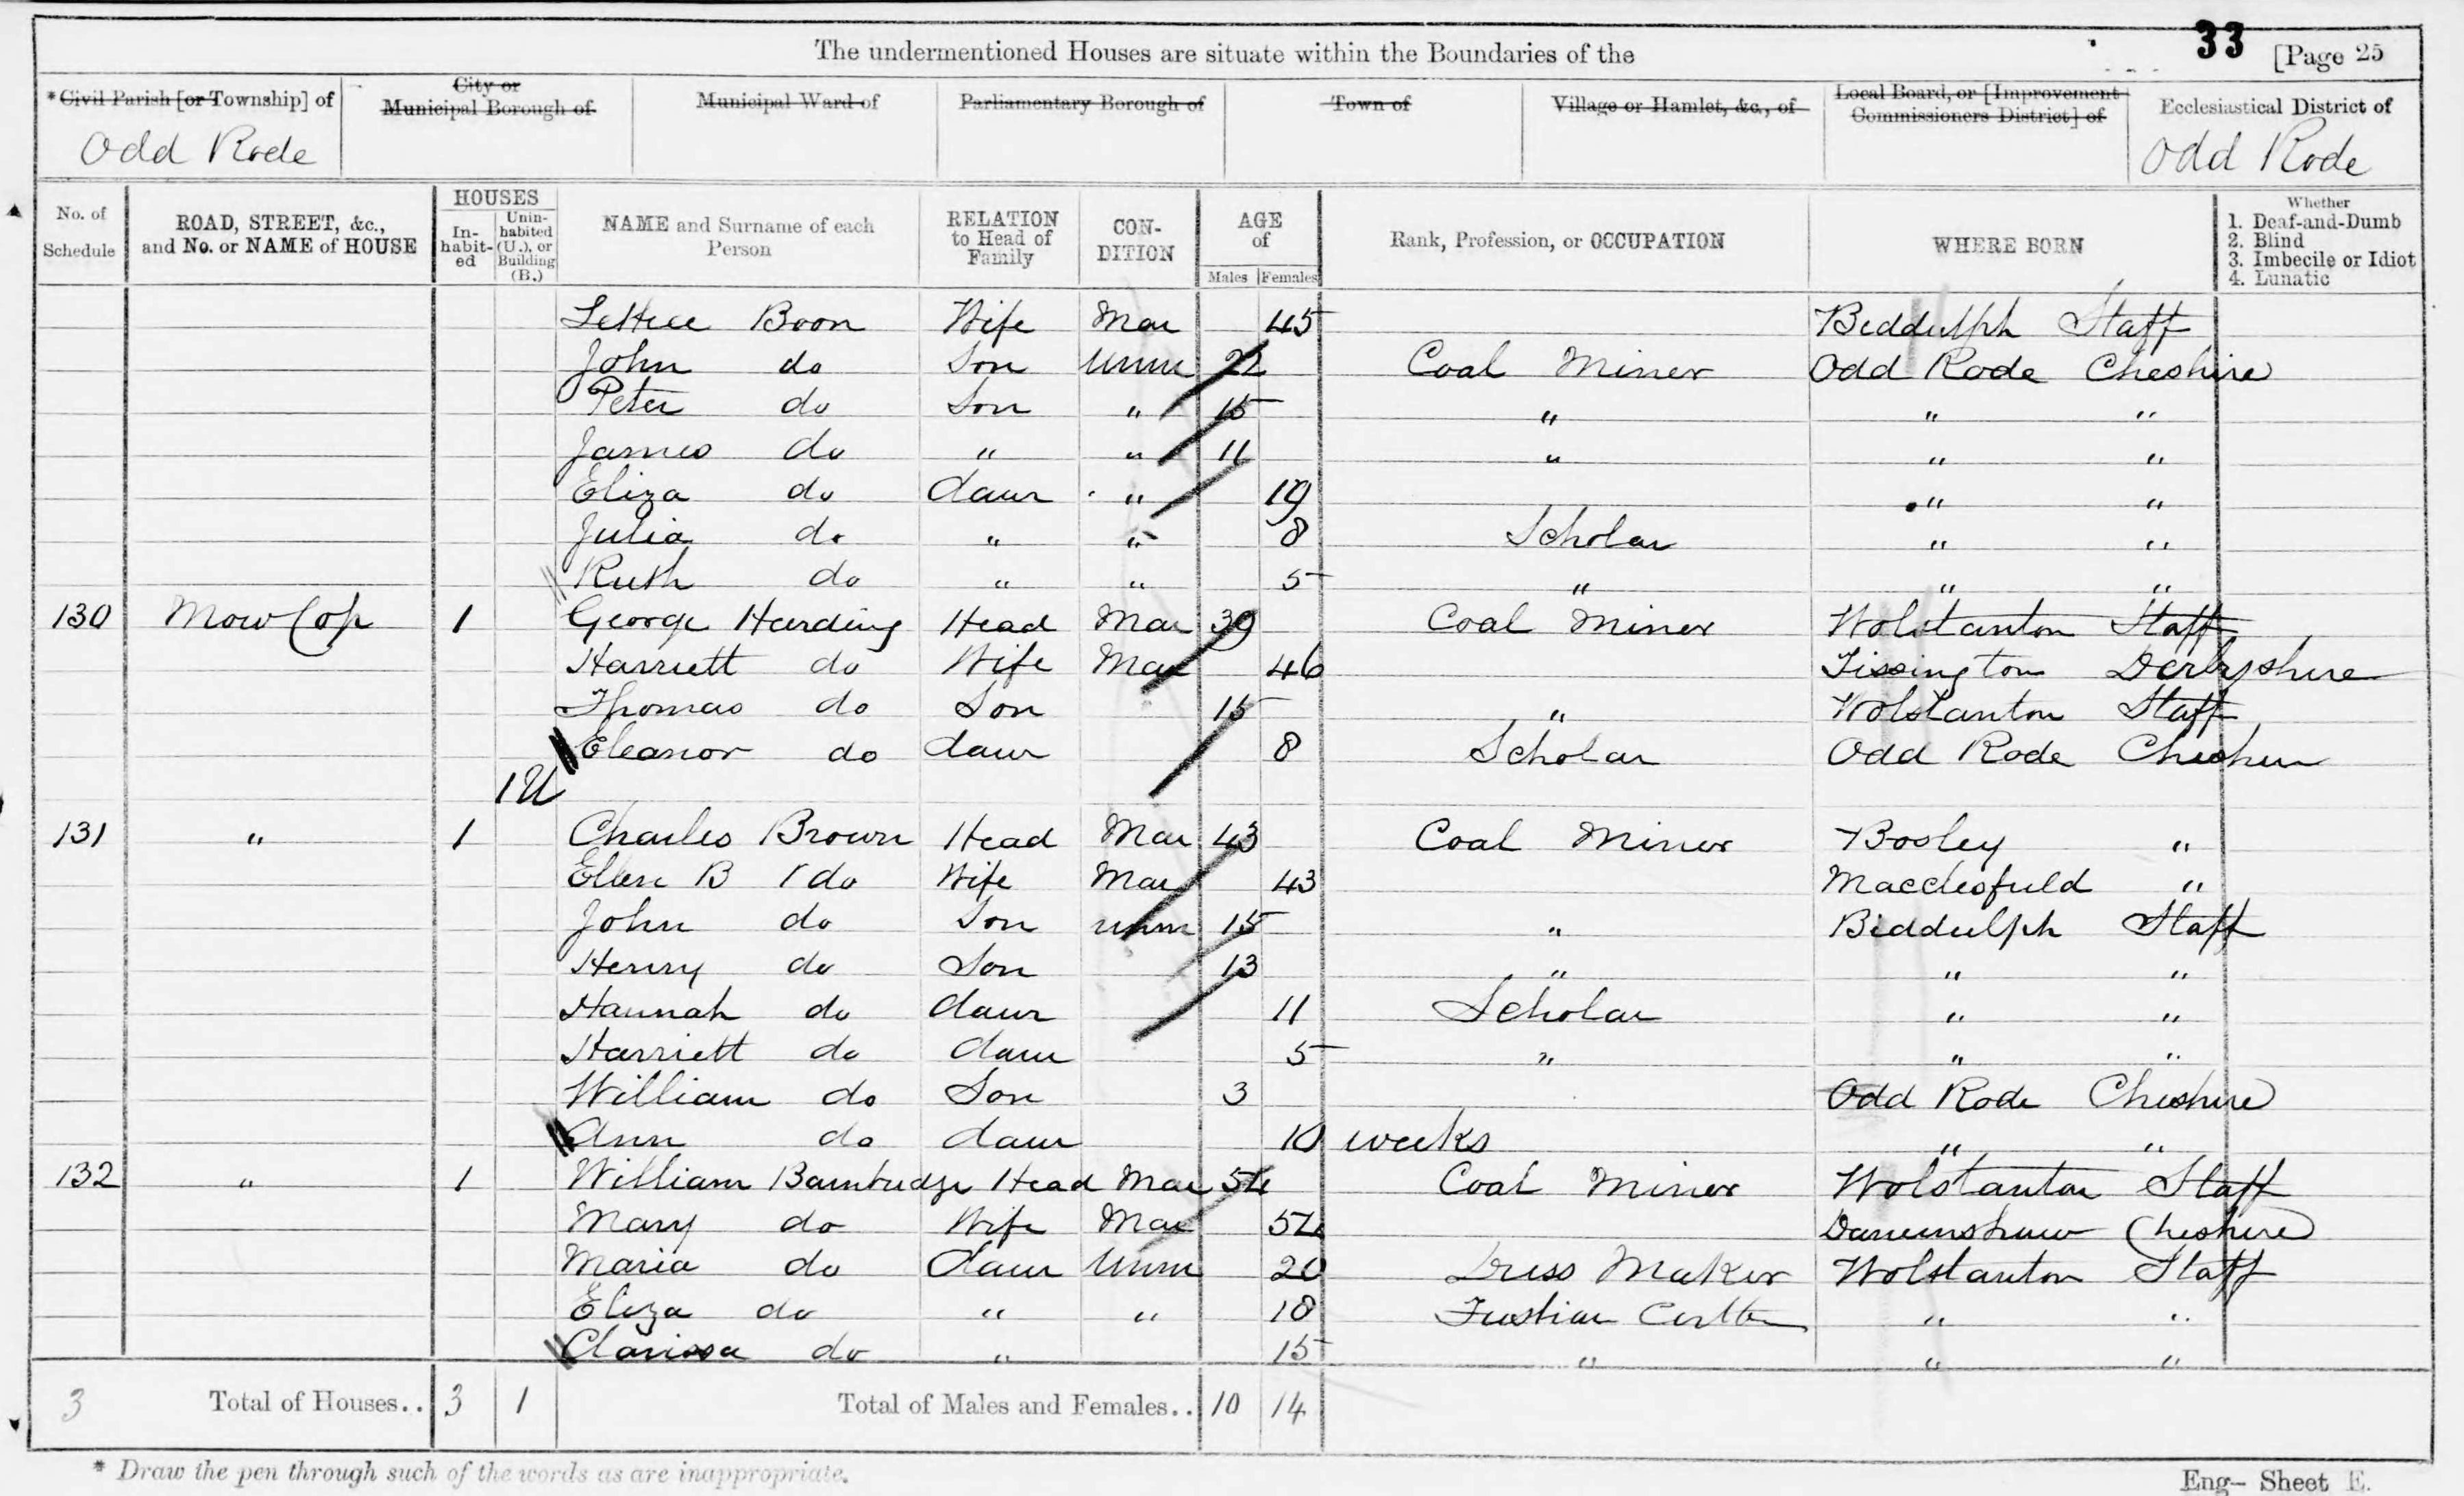 33 [Page 25
The undermentioned Houses are situate within the Boundaries of the
*Civil Parish [or Township] of City or Municipal Borough of Municipal Ward of Parliamentary Borough of Town of Village or Hamlet, &c., of Local Board, or [Improvement Commissioners District] of Ecclesiastical District of
Odd Rode Odd Rode
No. of Schedule ROAD, STREET, &c., and No. or NAME of HOUSE HOUSES Inhabited Uninhabited (U.), or Building (B.) NAME and Surname of each Person RELATION to Head of Family CONDITION AGE of Males Females Rank, Profession, or OCCUPATION WHERE BORN Whether 1. Deaf-and-Dumb 2. Blind 3. Imbecile or Idiot 4. Lunatic
Lettice Boon Wife Mar 45 Biddulph Staff
John do Son Unm 22 Coal Miner Odd Rode Cheshire
Peter do Son " 15 " " "
James do " " 11 " " "
Eliza do daur " 19 " "
Julia do " " 8 Scholar " "
Ruth do " " 5 " " "
130 Mow Cop 1 George Harding Head Mar 39 Coal Miner Wolstanton Staff
Harriett do Wife Mar 46 Tissington Derbyshire
Thomas do Son 15 " Wolstanton Staff
Eleanor do daur 8 Scholar Odd Rode Cheshire
1U
131 " 1 Charles Brown Head Mar 43 Coal Miner Bosley "
Ellen B do Wife Mar 43 Macclesfield "
John do Son unm 15 " Biddulph Staff
Henry do Son 13 " " "
Hannah do daur 11 Scholar " "
Harriett do daur 5 " " "
William do Son 3 Odd Rode Cheshire
Ann do daur 10 weeks " "
132 " 1 William Head Mar 54 Coal Miner Wolstanton Staff
Mary do Wife Mar 54 Cheshire
Maria do daur Unm 20 Dress Maker Wolstanton Staff
Eliza do " " 18 Fustian Cutter " "
Clarissa do " 15 " " "
3 Total of Houses.. 3 1 Total of Males and Females.. 10 14
* Draw the pen through such of the words as are inappropriate.
Eng- Sheet E.